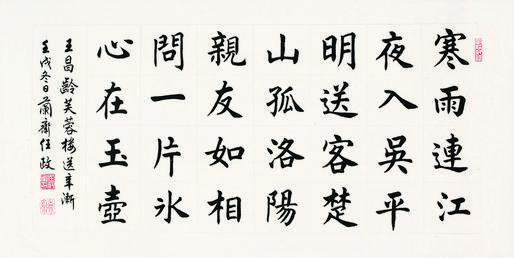 寒雨連江
夜入吳平
明送客楚
山孤洛陽
親友如相
問一片氷
心在玉壺
王昌齡芙蓉樓送辛漸
壬戌冬日蘭齋任政